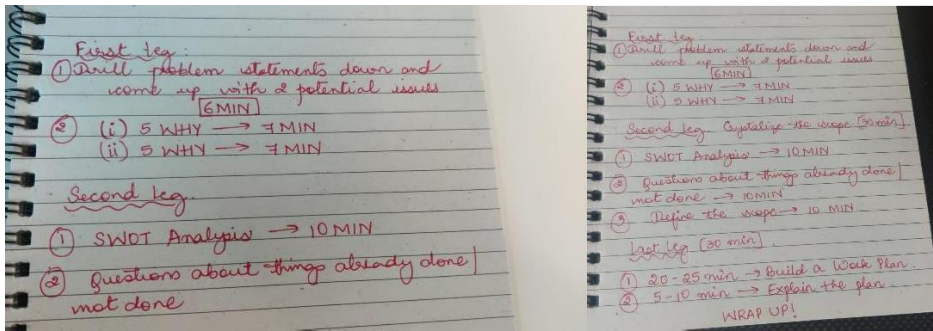 First leg:
① Drill problem statements down and
come up with 2 potential issues
6 MIN
② (i) 5 WHY → 7 MIN
(ii) 5 WHY → 7 MIN
Second leg
① SWOT Analysis → 10 MIN
② Questions about things already done /
not done
First leg:
① Drill problem statements down and
come up with 2 potential issues
6 MIN
② (i) 5 WHY → 7 MIN
(ii) 5 WHY → 7 MIN
Second leg Crystalize the scope [30 min]
① SWOT Analysis → 10 MIN
② Questions about things already done /
not done → 10 MIN
③ Define the scope → 10 MIN
Last leg [30 min]
① 20-25 min → Build a Work Plan.
② 5-10 min → Explain the plan
WRAP UP!